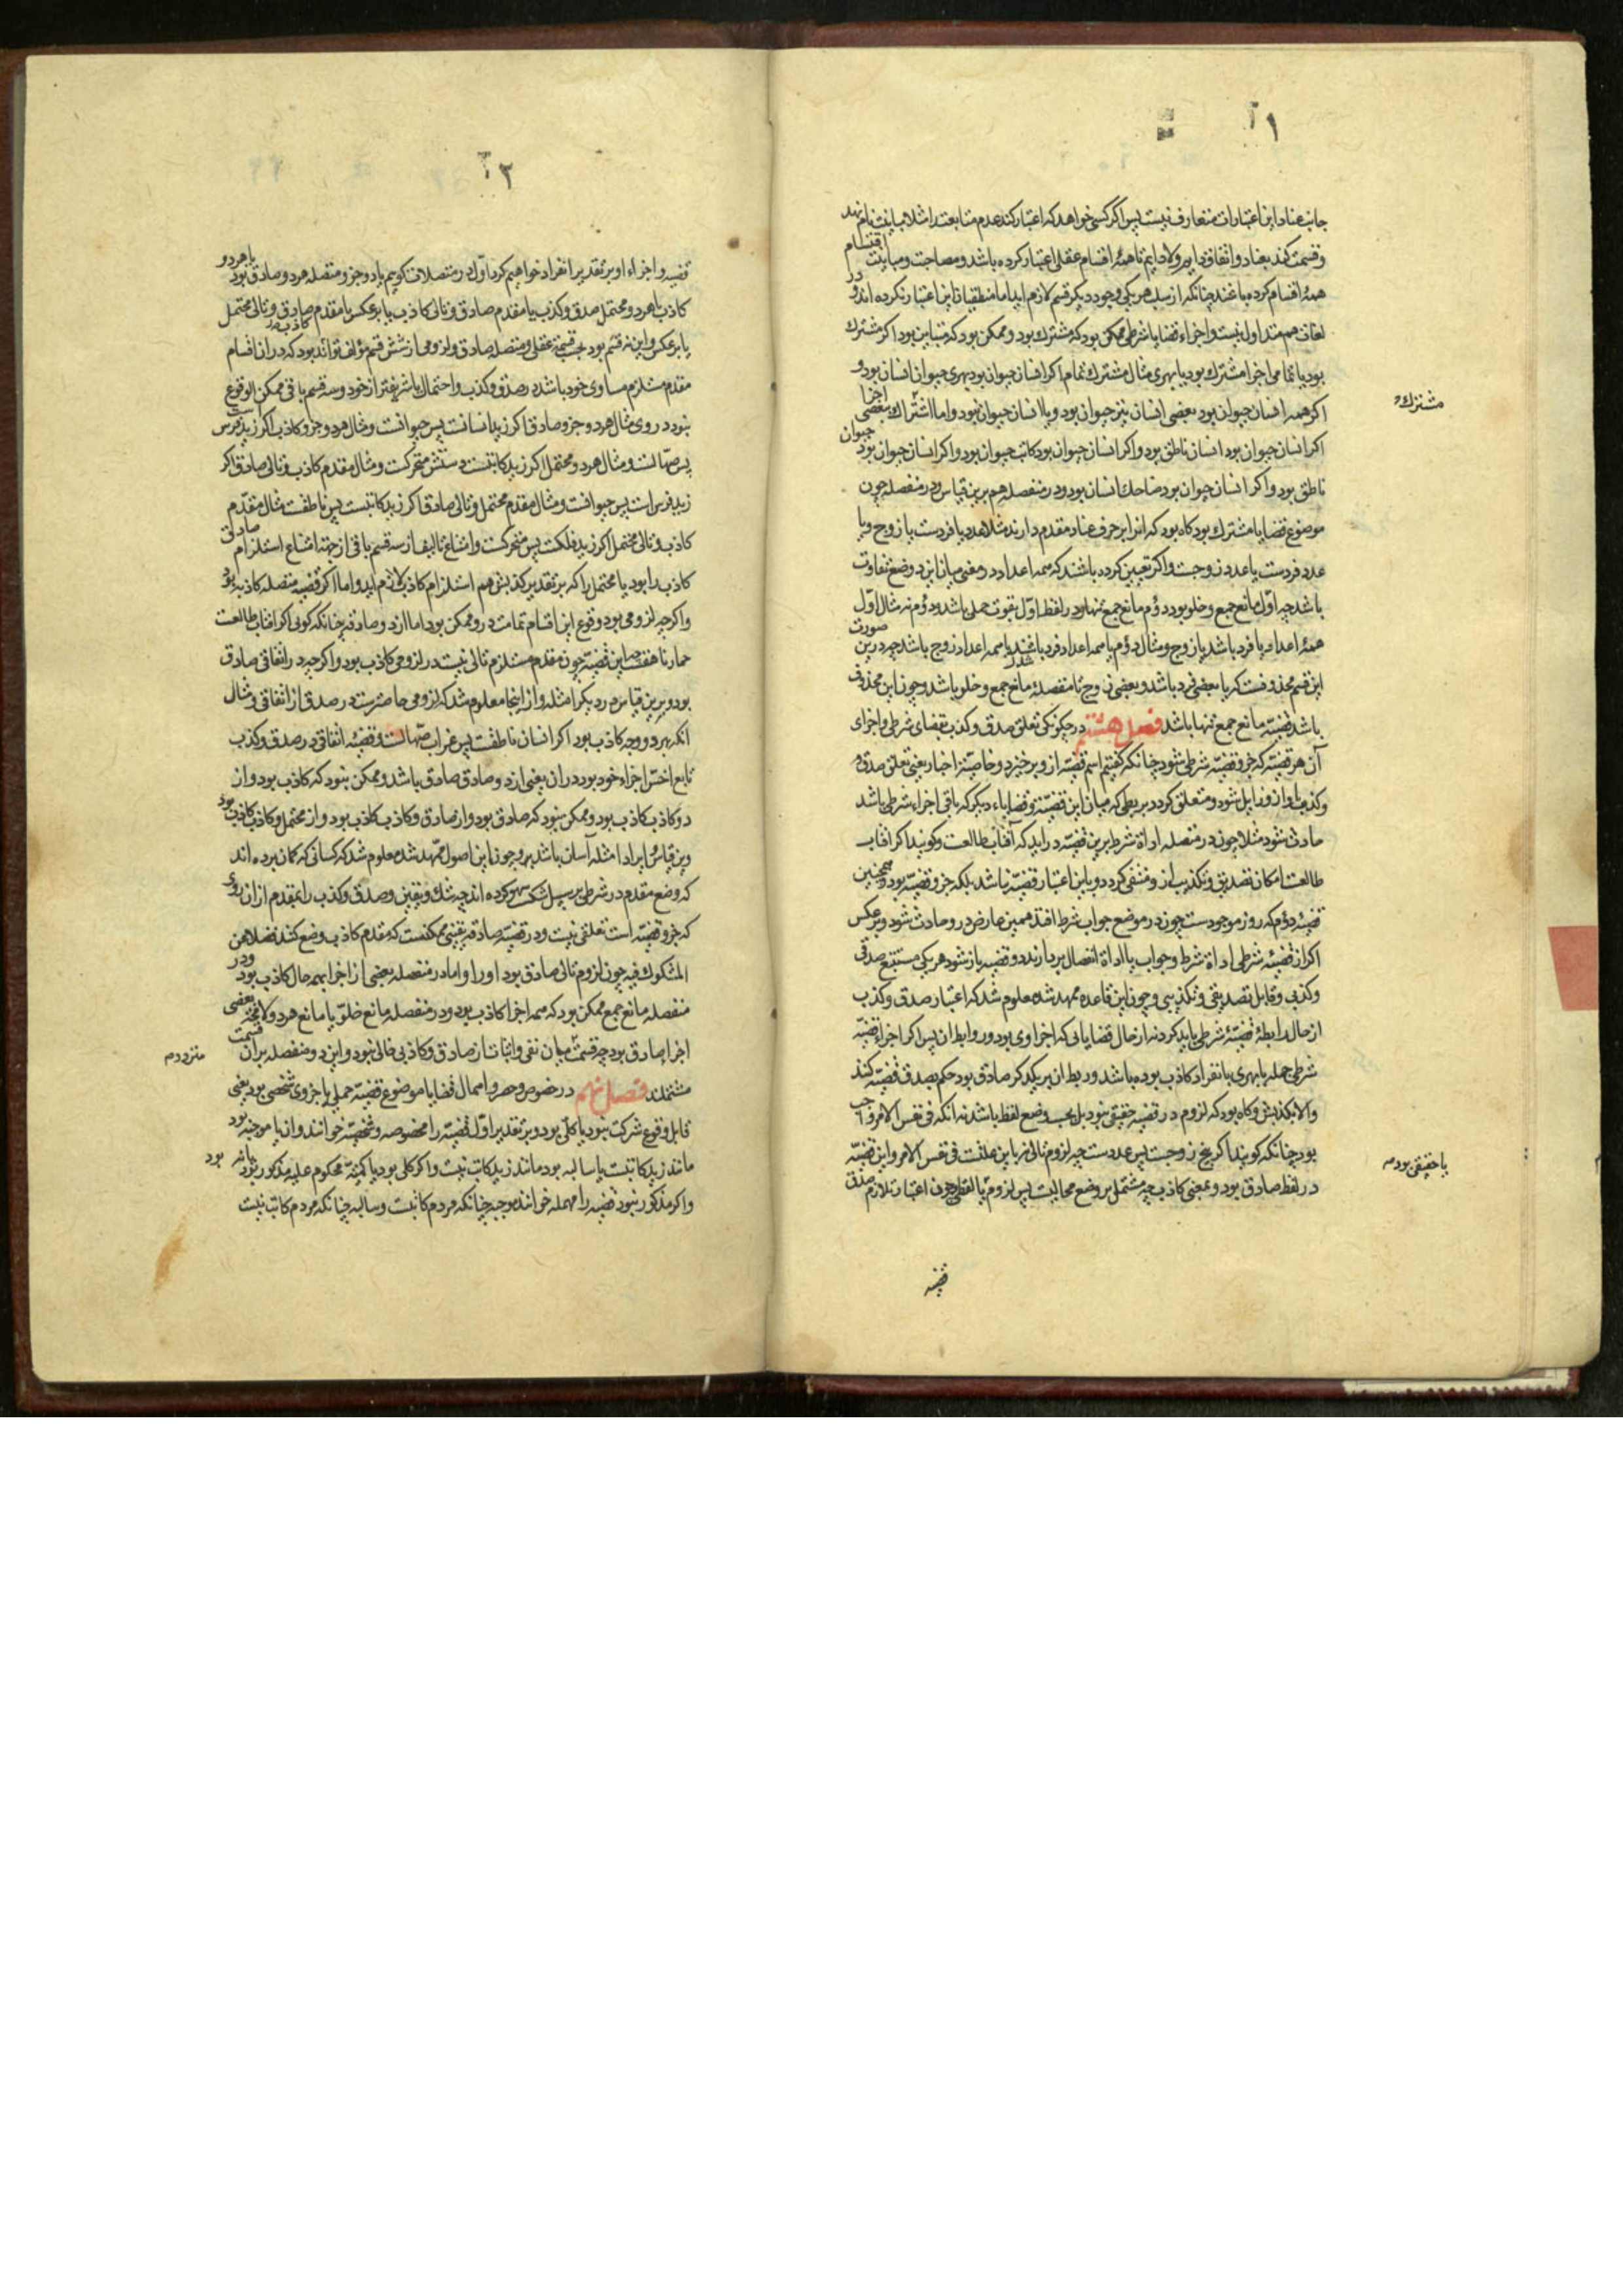 جانب عناد این اعتبارات متعارف نیست پس اگر کسی خواهد که اعتبار کند عدم متابعت را مثلا مباینت نام نهد
و قسمت کند بعناد و اتفاق دایم ولادایم تا همهٔ اقسام عقلی اعتبار کرده باشد و مصاحبت و مباینت اقتسام
همهٔ اقسام کرده باشد چنانکه از سلب هر یکی وجود دیگر قسم لازم اید اما منطقیان این اعتبار نکرده اند و در
لغات هم متداول نیست و اجزاء قضایا شرطی ممکن بود که مشترک بود و ممکن بود که متباین بود اگر مشترک
بود یا بتمامی اجزا مشترک بود یا ببهری مثال مشترک بتمام اکر انسان حیوان بود بهری حیوان انسان بود و
اکر همه انسان حیوان بود بعضی انسان نیز حیوان بود و یا انسان حیوان نبود و اما اشتراک ببعضی اجزا
مشترک
اکر انسان حیوان بود انسان ناطق بود و اکر انسان حیوان بود کاتب حیوان بود و اکر انسان حیوان بود حیوان
ناطق بود و اکر انسان حیوان بود ضاحک انسان بود و در منفصله هم برین قیاس و در منفصله چون
موضوع قضایا مشترک بود کاه بود که انرا بر حرف عناد مقدم دارند مثلا عدد یا فردست یا زوج و یا
عدد فردست یا عدد زوجست و اکر تعیین کرده باشند که همه اعداد در معنی میان این دو وضع تفاوت
باشد چه اوّل مانع جمع و خلو بود و دوم مانع جمع تنها و در لفظ اوّل بقوت حملی باشد و دوم نه مثال اوّل
همهٔ اعداد یا فرد باشد یا زوج و مثال دوم یا همه اعداد فرد باشند یا همه اعداد زوج باشد چه درین صورت
این قسم محذوفست که یا بعضی فرد باشد و بعضی زوج تا منفصلهٔ مانع جمع و خلو باشد و چون این محذوف
باشد قضیّه مانع جمع تنها باشد فصل هشتم در چکونکی تعلق صدق و کذب بقضای شرطی و اجزای
آن هر قضیّه که جزو قضیّه شرطی شود چنانکه کفتیم اسم قضیّه ازو برخیزد و خاصیّة اخبار یعنی تعلق صدق
و کذب باو ازو زایل شود و متعلق کردد بربطی که میان این قضیّه و قضایاء دیکر که باقی اجزاء شرطی باشد
حادث شود مثلا چون در متصله اداة شرط برین قضیّه در اید که آفتاب طالعست و کویند اکر آفتاب
طالعست امکان تصدیق و تکذیب از و منتفی کردد و باین اعتبار قضیّه نباشد بلکه جزو قضیّه بود و همچنین
قضیّه دوم که روز موجودست چون در موضع جواب شرط افتد همین عارض درو حادث شود و برعکس
اکر از قضیّه شرطی اداة شرط و جواب یا اداة انفصال بردارند دو قضیه باز شود هر یکی مستتبع صدقی
و کذبی و قابل تصدیقی و تکذیبی و چون این قاعده ممهد شد معلوم شد که اعتبار صدق و کذب
از حال رابطهٔ قضیّهٔ شرطی باید کرد نه از حال قضایائی که اجزا وی بود و روابط ان پس اکر اجزاء قضیّه
شرطی جمله یا بهری بانفراد کاذب بوده باشد و ربط ان بر یکدکر صادق بود حکم بصدق قضیّه کنند
والا بکذبش و کاه بود که لزوم در قضیه حقیقی نبود بل بحسب وضع لفظ باشد نه انکه فی نفس الامر واجب
بود چنانکه کویند اکر پنج زوجست پس عددست چه لزوم تالی نه باین علتست فی نفس الامر و این قضیّه
یا حقیقی بود
در لفظ صادق بود و بمعنی کاذب چه مشتمل بر وضع محالیست پس لزوم یا لفظی چون اعتبار تلازم صدق
قضیه
قضیه و اجزاء او بر تقدیر انفراد خواهیم کرد اوّل در متصلات کویم یا دو جزو متصله هر دو صادق بود یا هر دو
کاذب یا هر دو محتمل صدق و کذب یا مقدم صادق و تالی کاذب یا برعکس یا مقدم صادق و تالی محتمل
یا برعکس و این نه قسم بود بحسب قسمة عقلی و متصله صادق و لزومی از شش قسم مؤلف تواند بود که در ان اقسام
مقدم مستلزم مساوی خود باشد در صدق و کذب و احتمال یا شریفتر از خود و سه قسم باقی ممکن الوقوع
نبود در وی مثال هر دو جزو صادق اکر زید انسانست پس حیوانست و مثال هر دو جزو کاذب اکر زید فرس است
پس صهالست و مثال هر دو محتمل اکر زید کاتبست دستش متحرکست و مثال مقدم کاذب و تالی صادق اکر
زید فرس است پس حیوانست و مثال مقدم محتمل و تالی صادق اکر زید کاتبست پس ناطقست مثال مقدّم
کاذب و تالی محتمل اکر زید فلکست پس متحرکست و امتناع تالیف از سه قسم باقی از جهة امتناع استلزام صادقی
کاذب را بود یا محتمل را که بر تقدیر کذبش هم استلزام کاذب لازم اید و اما اکر قضیه متصله کاذبه بود
و اکرچه لزومی بود وقوع این اقسام بتمامت درو ممکن بود اما از دو صادق چنانکه کوئی اکر افتاب طالعست
حمار ناهقست چه این قضیّه چون مقدم مستلزم تالی نیست در لزومی کاذب بود و اکرچه در اتفاقی صادق
بود و برین قیاس در دیکر امثله و از اینجا معلوم شد که لزومی خاصترست در صدق از اتفاقی و مثال
انکه بهر دو وجه کاذب بود اکر انسان ناطقست پس غراب صهالست و قضیّه اتفاقی در صدق و کذب
تابع اخسّ اجزاء خود بود دران یعنی از دو صادق صادق باشد و ممکن نبود که کاذب بود و از
دو کاذب کاذب بود و ممکن نبود که صادق بود و از صادق و کاذب کاذب بود و از محتمل و کاذب کاذب بود
و برین قیاس و ایراد امثله آسان باشد پس و چون این اصول ممهّد شد معلوم شد که کسانی که کمان برده اند
که وضع مقدم در شرطی بر سبیل شکست سهو کرده اند چه شک و یقین و صدق و کذب را بمقدم از ان روی
که جزو قضیّه است تعلقی نیست و در قضیّه صادقه یقینی ممکنست که مقدم کاذب وضع کنند فضلا عن
المشکوک فیه چون لزوم تالی صادق بود او را و اما در منفصله بعضی از اجزا بهمه حال کاذب بود و در
منفصله مانع جمع ممکن بود که همه اجزا کاذب بود و در منفصله مانع خلوّ یا مانع هر دو لامحاله بعضی
اجزا صادق بود چه قسمت میان نفی و اثبات از صادق و کاذبی خالی نبود و این دو منفصله بران قسمت
مشتملند فصل نهم در خصوص و حصر و اهمال قضایا موضوع قضیّه حملی یا جزوی شخصی بود یعنی
قابل وقوع شرکت نبود یا کلی بود و بر تقدیر اوّل قضیّه را مخصوصه و شخصیّه خوانند و ان یا موجبه بود
مانند زید کاتبست یا سالبه بود مانند زید کاتب نیست و اکر کلی بود یا کمیّة محکوم علیه مذکور بود یا نه
بود
و اکر مذکور نبود قضیه را مهمله خوانند موجبه چنانکه مردم کاتبست و سالبه چنانکه مردم کاتب نیست